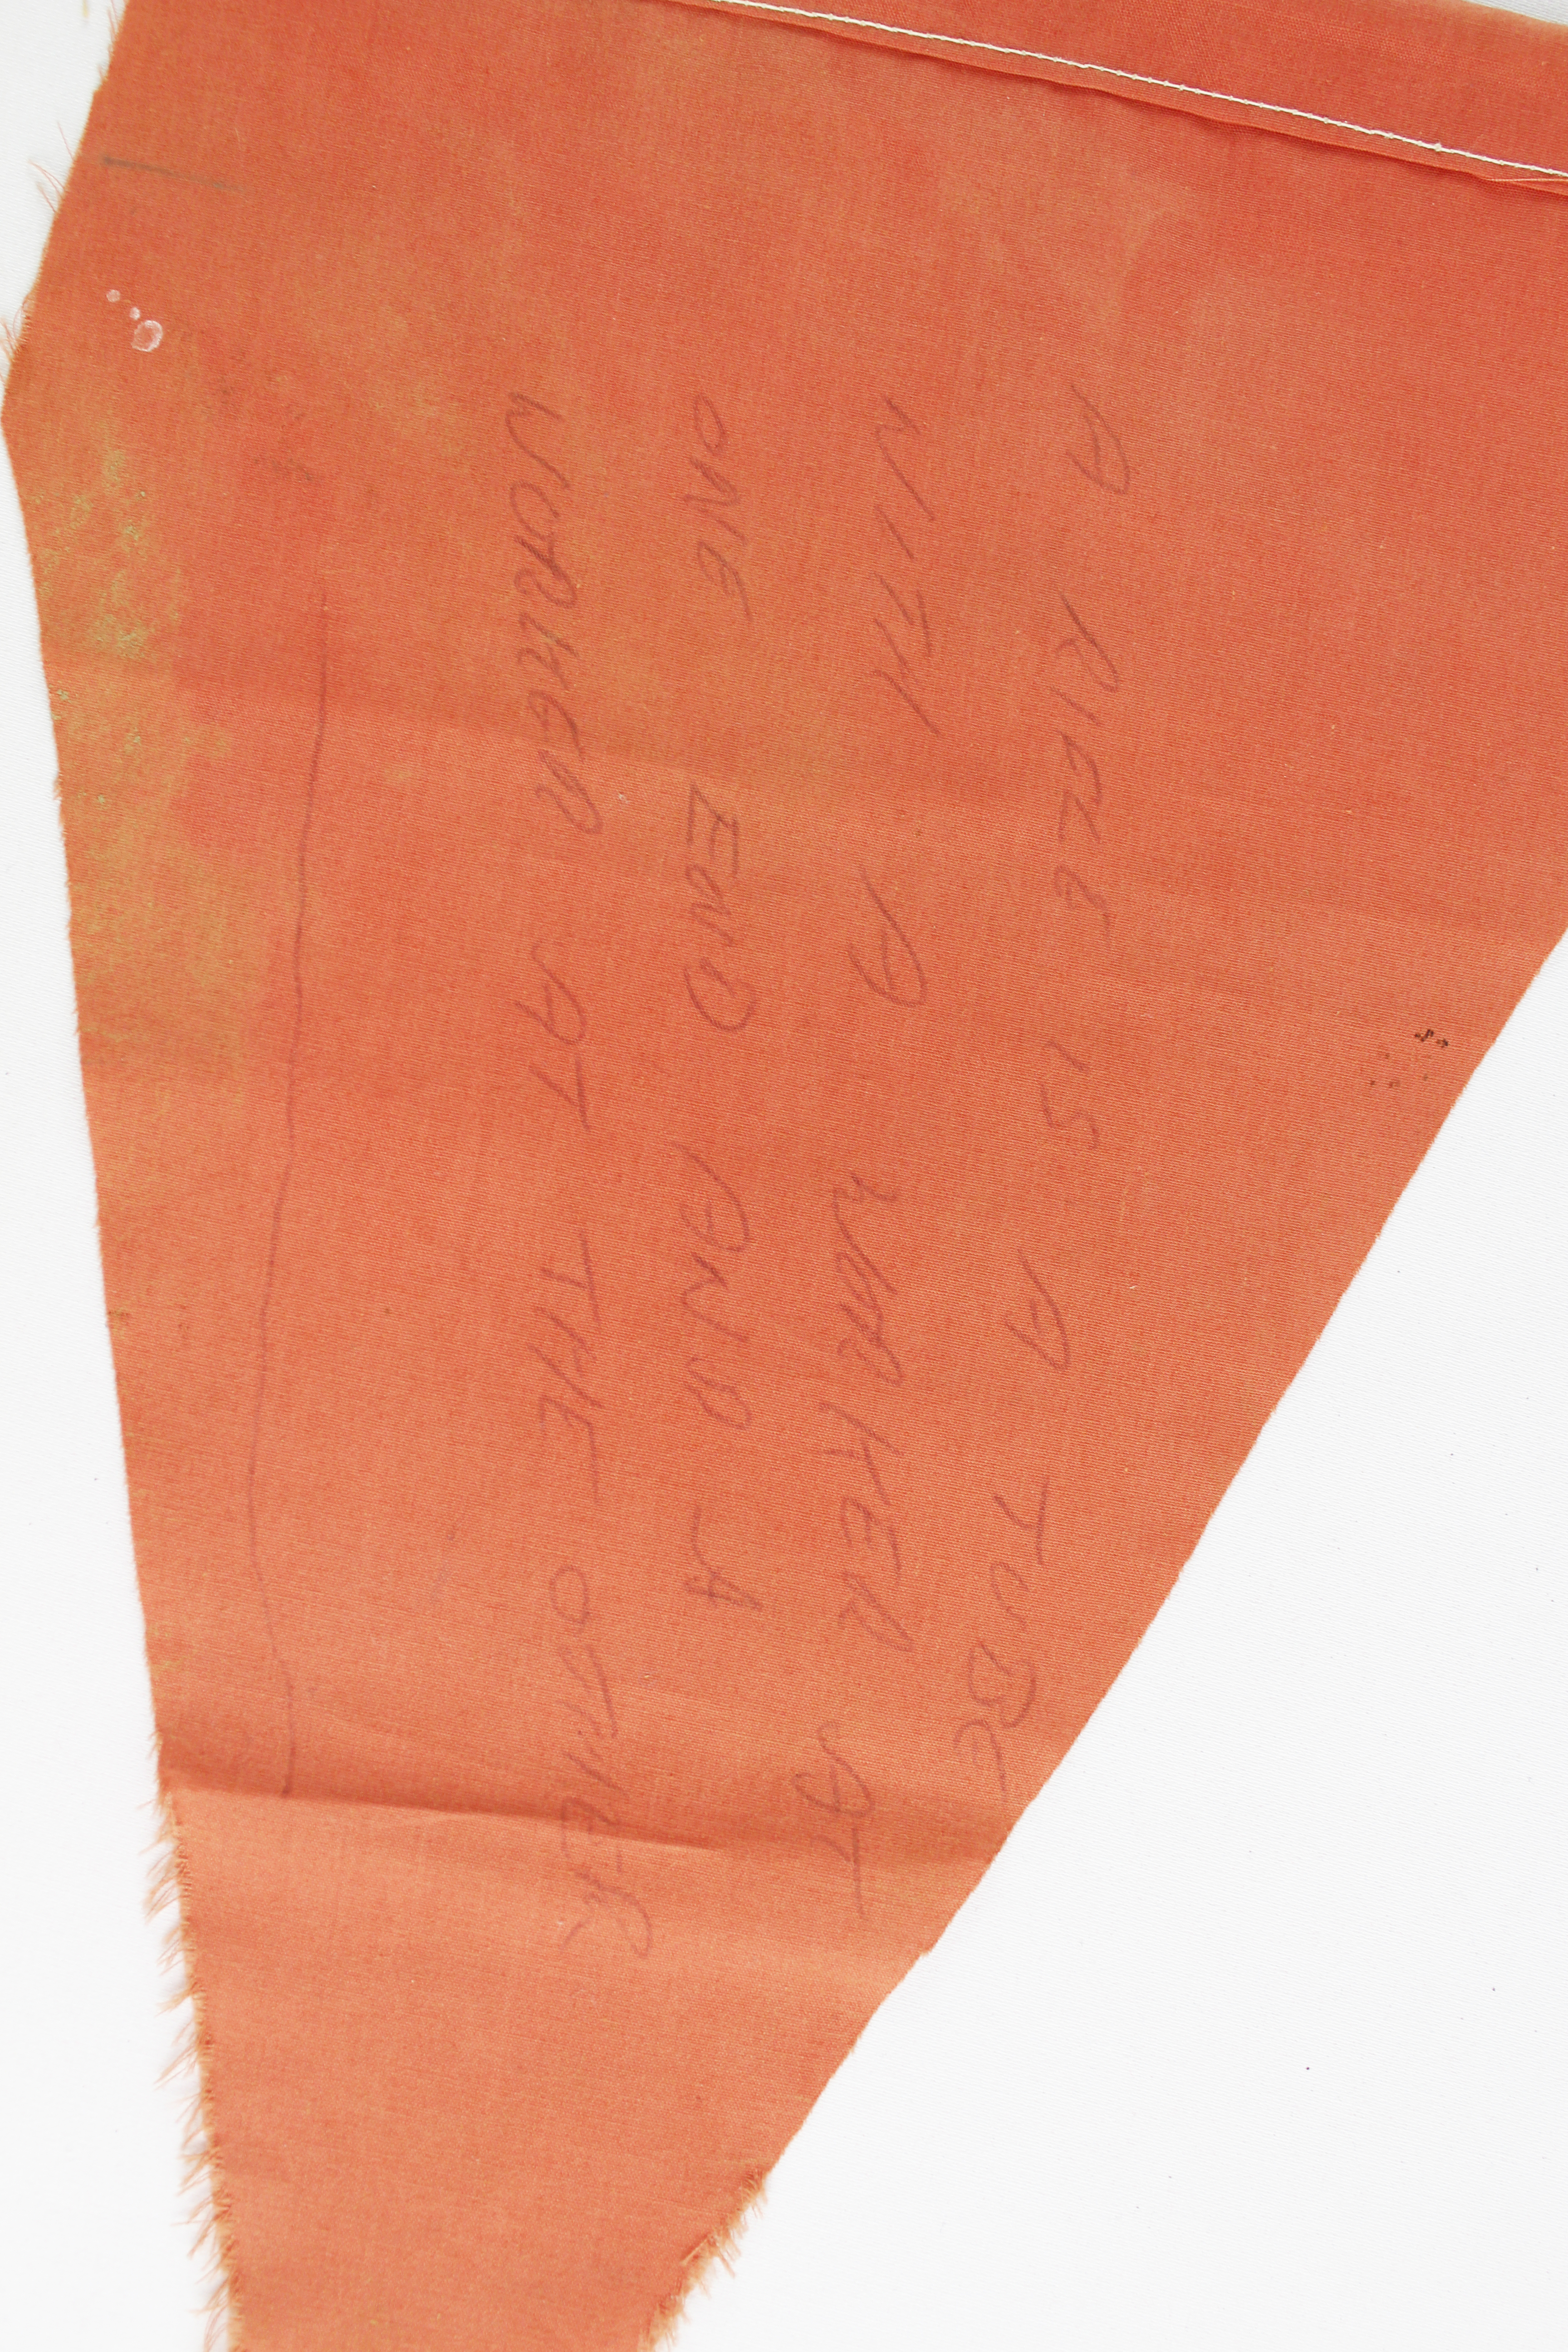 A RIFLE IS A TUBE
WITH A WORKER AT
ONE END AND A
WORKER AT THE OTHER